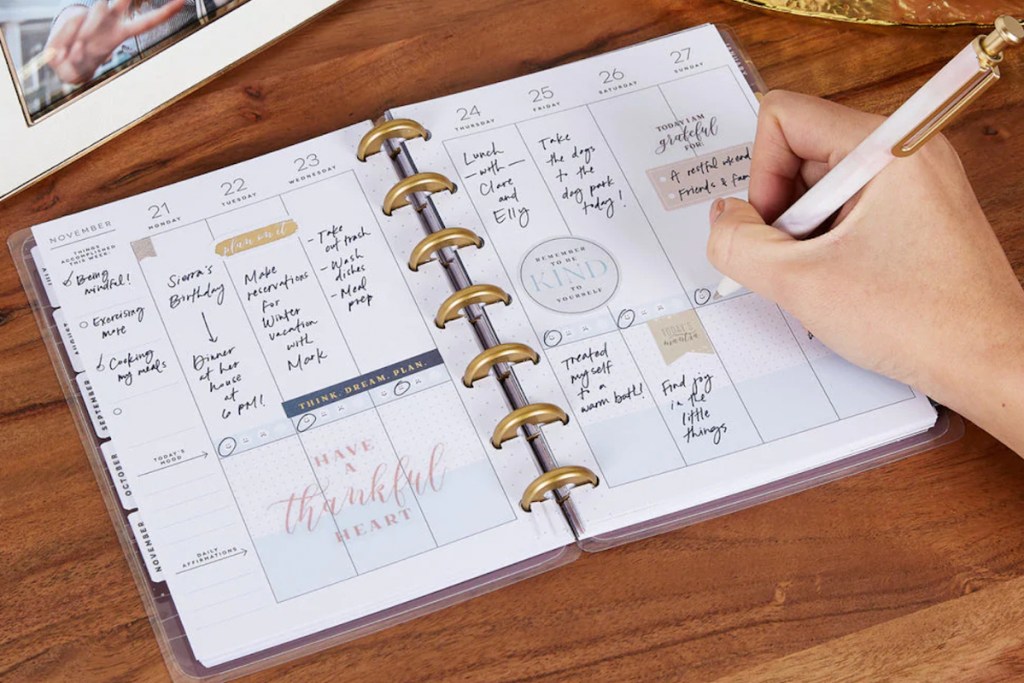 NOVEMBER
THINGS
ACCOMPLISHED
THIS WEEK!
Being
mindful!
Exercising
more
Cooking
my meals
TODAY'S
MOOD
DAILY
AFFIRMATIONS
AUGUST
SEPTEMBER
OCTOBER
NOVEMBER
21
MONDAY
Sierra's
Birthday
Dinner
at her
house
at
6 PM!
22
TUESDAY
plan on it
Make
reservations
for
Winter
vacation
with
Mark
23
WEDNESDAY
- Take
out trash
- Wash
dishes
- Meal
prep
THINK. DREAM. PLAN.
HAVE
A
thankful
HEART
24
THURSDAY
Lunch
- with -
Clare
and
Elly
REMEMBER
TO BE
KIND
TO
YOURSELF
Treated
myself
to a
warm bath!
25
FRIDAY
Take
the dogs
to the
dog park
today!
26
SATURDAY
TODAY'S
mantra
Find joy
in the
little
things
27
SUNDAY
TODAY I AM
grateful
FOR:
A restful
Friends &